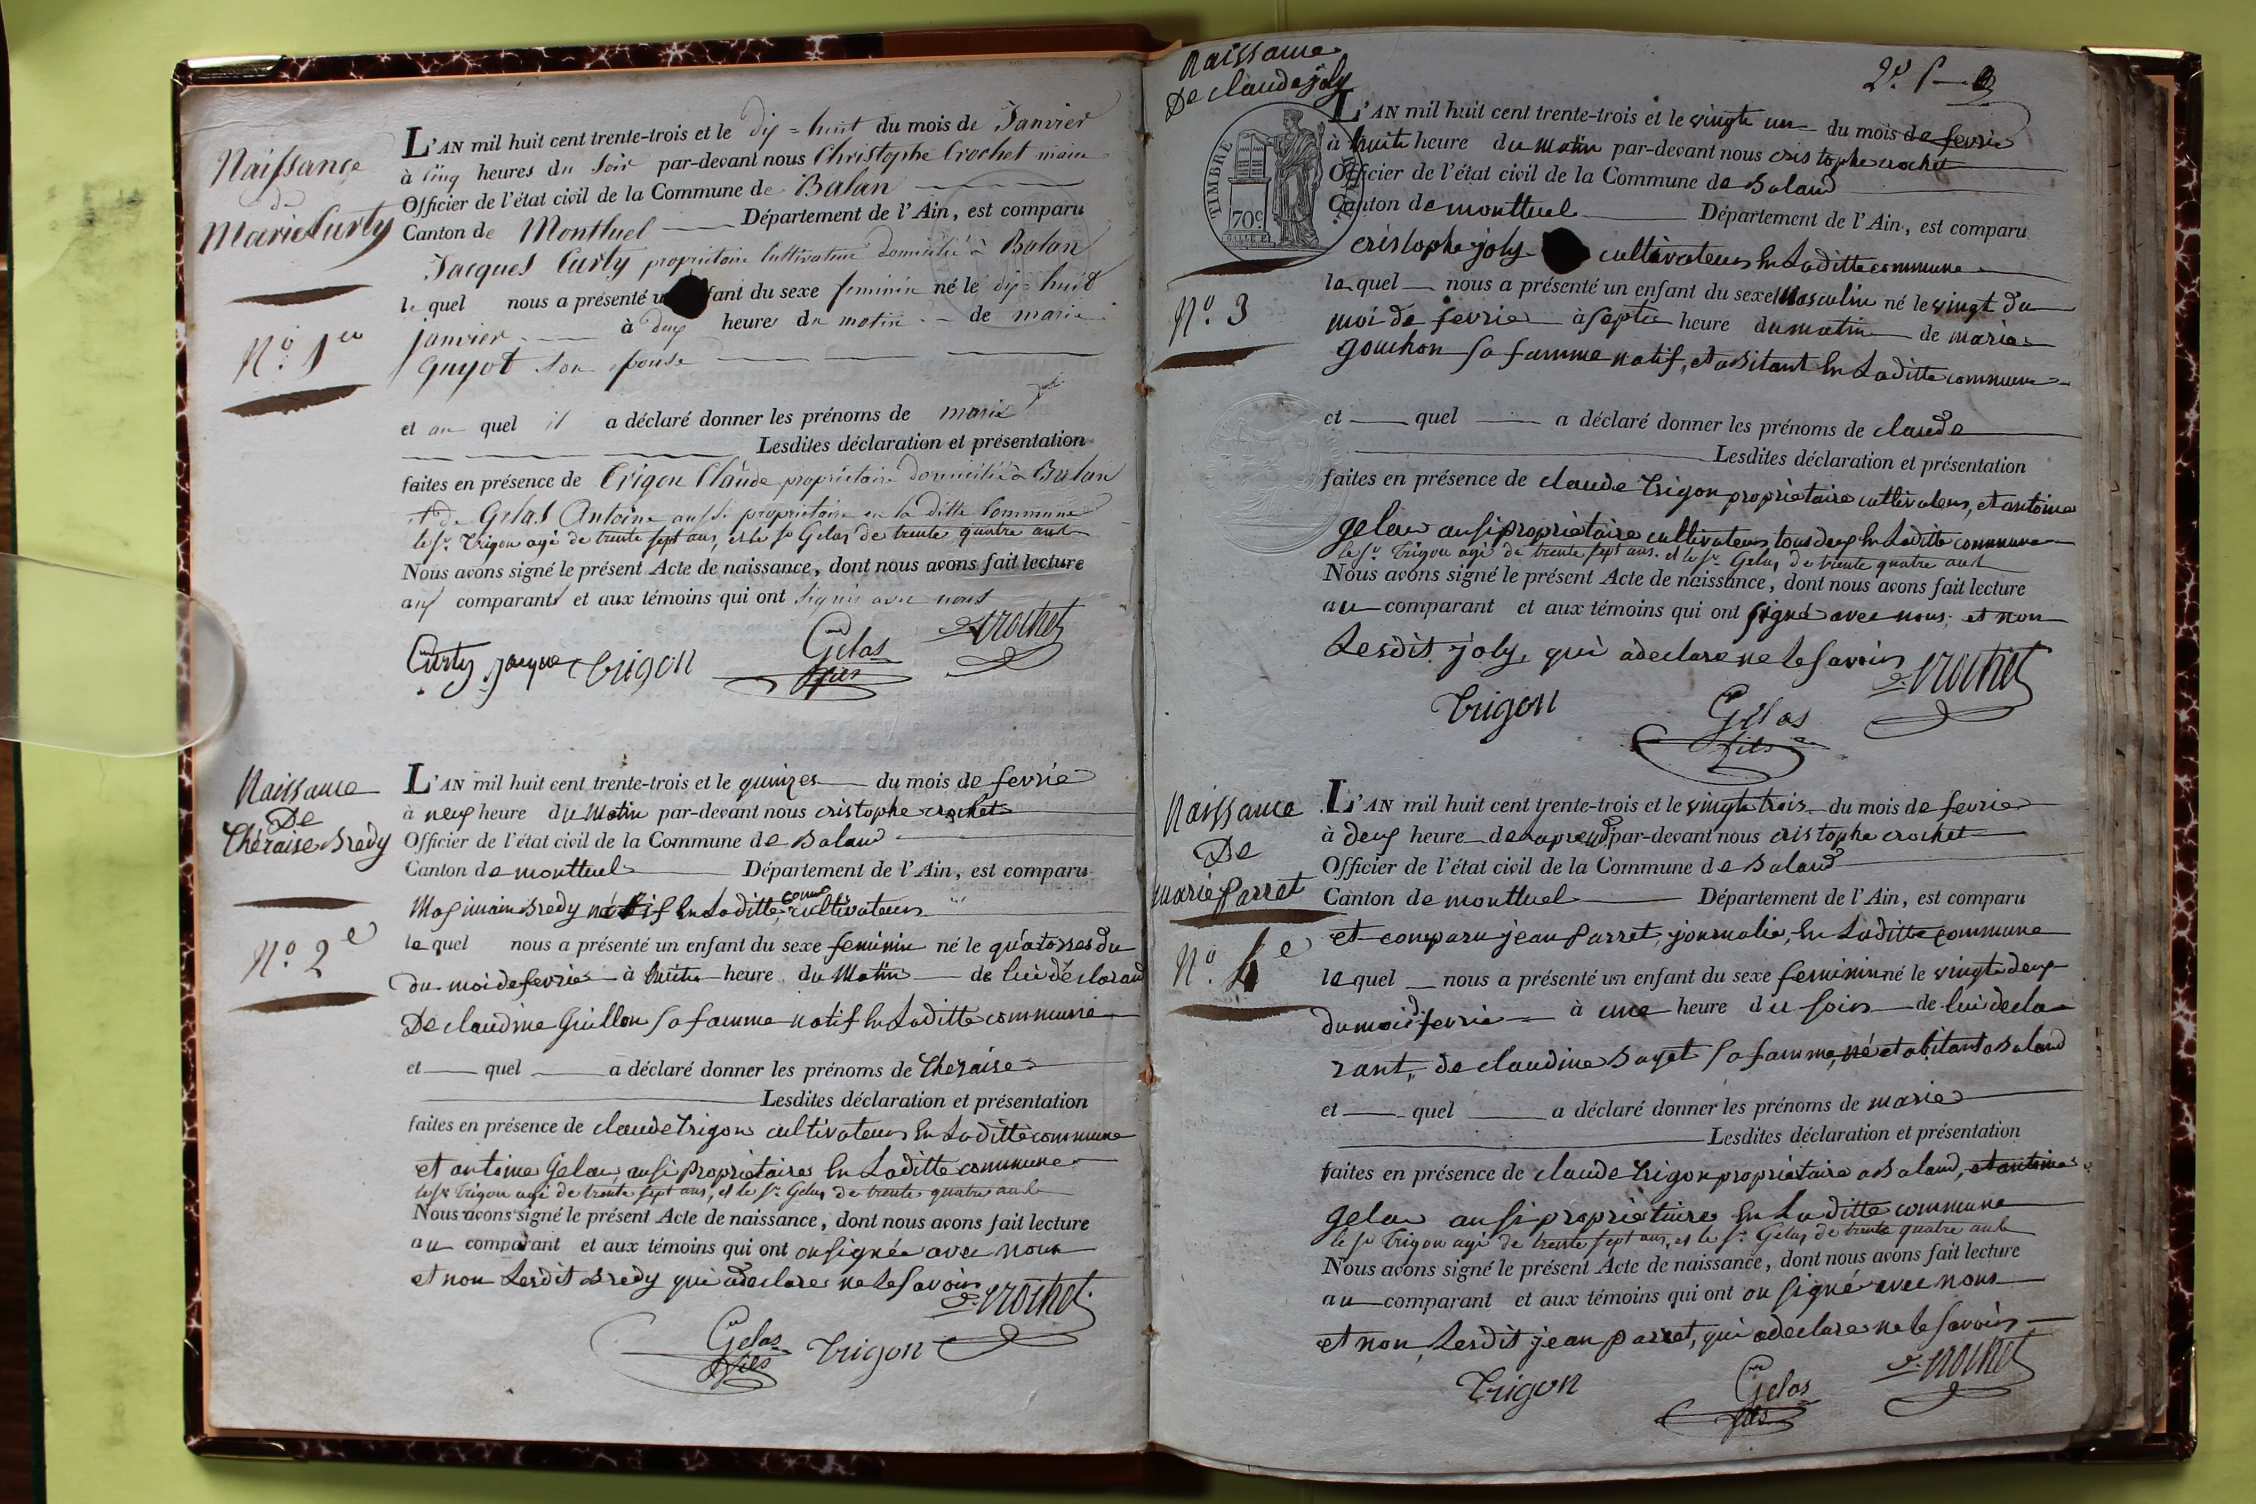 Naissance
de
Marie Curty
N.o 1er
L'AN mil huit cent trente-trois et le dix=huit du mois de Janvier
à cinq heures du soir par-devant nous Christophe Crochet maire
Officier de l'état civil de la Commune de Balan
Canton de Montluel Département de l'Ain, est comparu
Jacques Curty propriétaire Cultivateur domicilié à Balan
le quel nous a présenté un enfant du sexe féminin né le dix=huit
janvier à deux heures du matin de marie
Guyot son épouse
et au quel il a déclaré donner les prénoms de marie
Lesdites déclaration et présentation
faites en présence de Trigon Claude propriétaire domicilié à Balan
et de Gelas Antoine aussi propriétaire en la ditte Commune
le sr. Trigon agé de trente sept ans, et le sr Gelas de trente quatre ans
Nous avons signé le présent Acte de naissance, dont nous avons fait lecture
aux comparants et aux témoins qui ont signé avec nous
Curty jacque Trigon Gelas fils Crochet
Naissance
De
Theraise Bredy
N.o 2e
L'AN mil huit cent trente-trois et le quinzes du mois de fevrie
à neuf heure du Matin par-devant nous cristophe crochet
Officier de l'état civil de la Commune de Baland
Canton de montluel Département de l'Ain, est comparu
Bredy natif en Laditte comue cultivateur
le quel nous a présenté un enfant du sexe feminin né le quatorses du
du moi de fevrie à huite heure du Matin de lui déclarand
De claudine Guillon sa famme natif en Laditte commune
et quel a déclaré donner les prénoms de Theraise
Lesdites déclaration et présentation
faites en présence de claude trigon cultivateur en Laditte commune
et antoine Gelas ausi propriétaire en Laditte commune
le sr Trigon agé de trente sept ans, et le sr. Gelas de trente quatre ans
Nous avons signé le présent Acte de naissance, dont nous avons fait lecture
au comparant et aux témoins qui ont on signée avec nous
et non Lesdit Bredy qui a declare ne le savoir
Gelas fils Trigon Crochet
2e f
Naissance
De claude joly
TIMBRE
70c.
N.o 3
L'AN mil huit cent trente-trois et le vingte un du mois de fevrie
à huite heure du matin par-devant nous cristophe crochet
Officier de l'état civil de la Commune de Baland
Canton de montluel Département de l'Ain, est comparu
cristophe joly cultivateur en Laditte commune
le quel nous a présenté un enfant du sexe Masculin né le vingt du
moi de fevrie à septe heure du matin de marie
gouchon sa famme natif, et abitant en Laditte commune
et quel a déclaré donner les prénoms de claude
Lesdites déclaration et présentation
faites en présence de claude trigon propriétaire cultivateur, et antoine
gelas ausi propriétaire cultivateur tous deux en Laditte commune
le sr. Trigon agé de trente sept ans. et le sr. Gelas de trente quatre ans
Nous avons signé le présent Acte de naissance, dont nous avons fait lecture
au comparant et aux témoins qui ont signé avec nous; et non
Lesdit joly, qui a declare ne le savoir
Trigon Gelas fils Crochet
Naissance
De
marie Parret
N.o 4e
L'AN mil huit cent trente-trois et le vingte trois du mois de fevrie
à deux heure par-devant nous cristophe crochet
Officier de l'état civil de la Commune de Baland
Canton de montluel Département de l'Ain, est comparu
et comparu jean Parret, journalie, en Laditte commune
le quel nous a présenté un enfant du sexe feminin né le vingte deux
du mois d. fevrie à une heure du soir de lui decla
rant, de claudine Bayet sa famme, né et abitant a Baland
et quel a déclaré donner les prénoms de marie
Lesdites déclaration et présentation
faites en présence de claude trigon propriétaire a Baland, et antoine
gelas ausi propriétaire en Laditte commune
le sr Trigon agé de trente sept ans, et le sr. Gelas de trente quatre ans
Nous avons signé le présent Acte de naissance, dont nous avons fait lecture
au comparant et aux témoins qui ont on signé avec nous
et non, Lesdit jean parret, qui a declare ne le savoir
Trigon Gelas fils Crochet